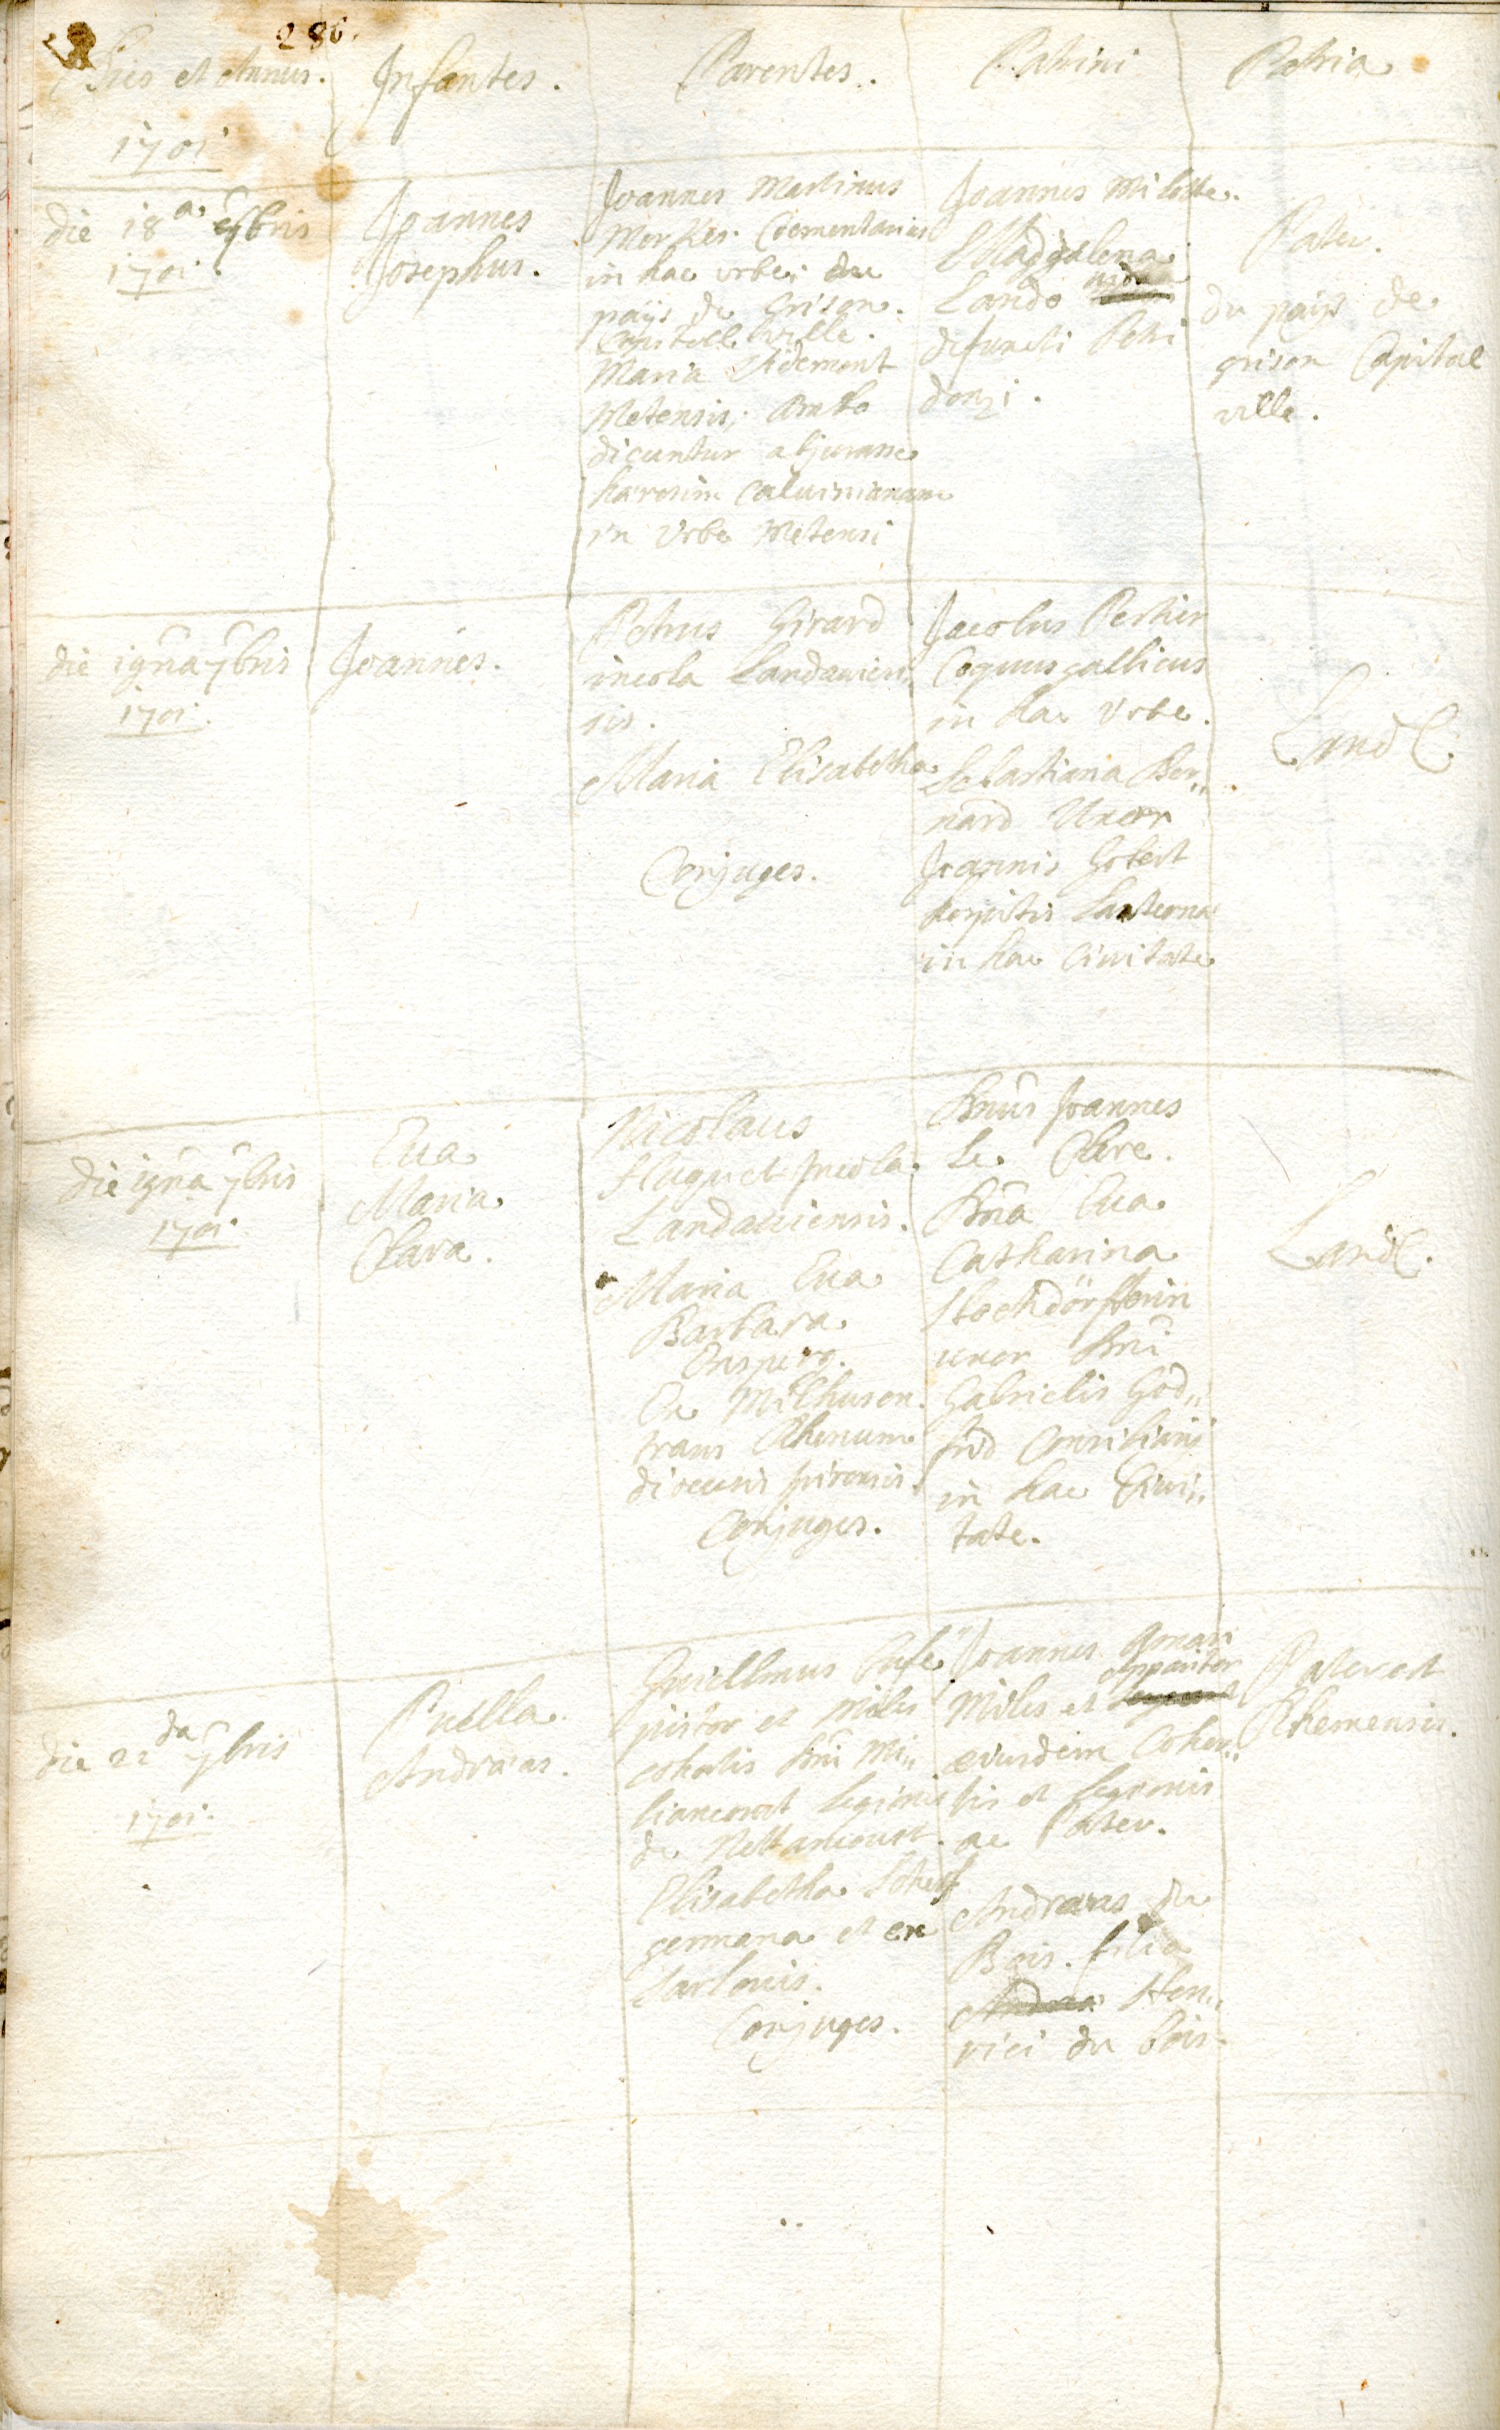 286.
Dies et Annus.
Infantes.
Parentes.
Patrini
Patria
1701
die 18a 7bris
1701.
Joannes
Josephus.
Joannes Martinus
Merkes. Coementarius
in hac urbe; du
païs de Grison.
Capitell ville.
Maria
Metensis; Ambo
dicuntur abjurasse
hæresim Caluinianam
in Vrbe Metensi
Joannes Milotte.
Madgalena
Lando
defuncti Petri
donzi.
Pater.
du païs de
grison Capital
ville.
die 19na 7bris
1701.
Joannes.
Petrus Girard
incola Landauien
sis.
Maria Elisabetha
Conjuges.
Jacobus Perkier
Coquus gallicus
in hac Vrbe.
Sebastiana Ber„
nard Uxor
Joannis Gobert
hospitis Lanterna
in hac Ciuitate
Land.
die 19na 7bris
1701.
Eua
Maria
Clara.
Nicolaus
Huguet Incola
Landauiensis.
Maria Eua
Barbara
Ensperg.
Ex Milhusen
trans Rhenum
diocesis spirensis.
Conjuges.
Dnus Joannes
Le Clere.
Dna Eua
Catharina
Stochdörfferin
uxor Dni
Gabrielis God„
frid Consiliarij
in hac Ciui„
tate.
Land.
die 22da 7bris
1701.
Puella
Andræas.
Guillmus
pistor et Miles
cohortis Dni Mi„
liancourt Legionis
de Nettancourt.
Elisabetha Scherf
germana et ex
Sarlouis.
Conjuges.
Joannes
Miles et apparitor
eiusdem Cohor„
tis et Legionis
ac Pater.
Andræas du
Bois. filia
Andreæ Hen„
rici du bois.
Pater est
Rhemensis.